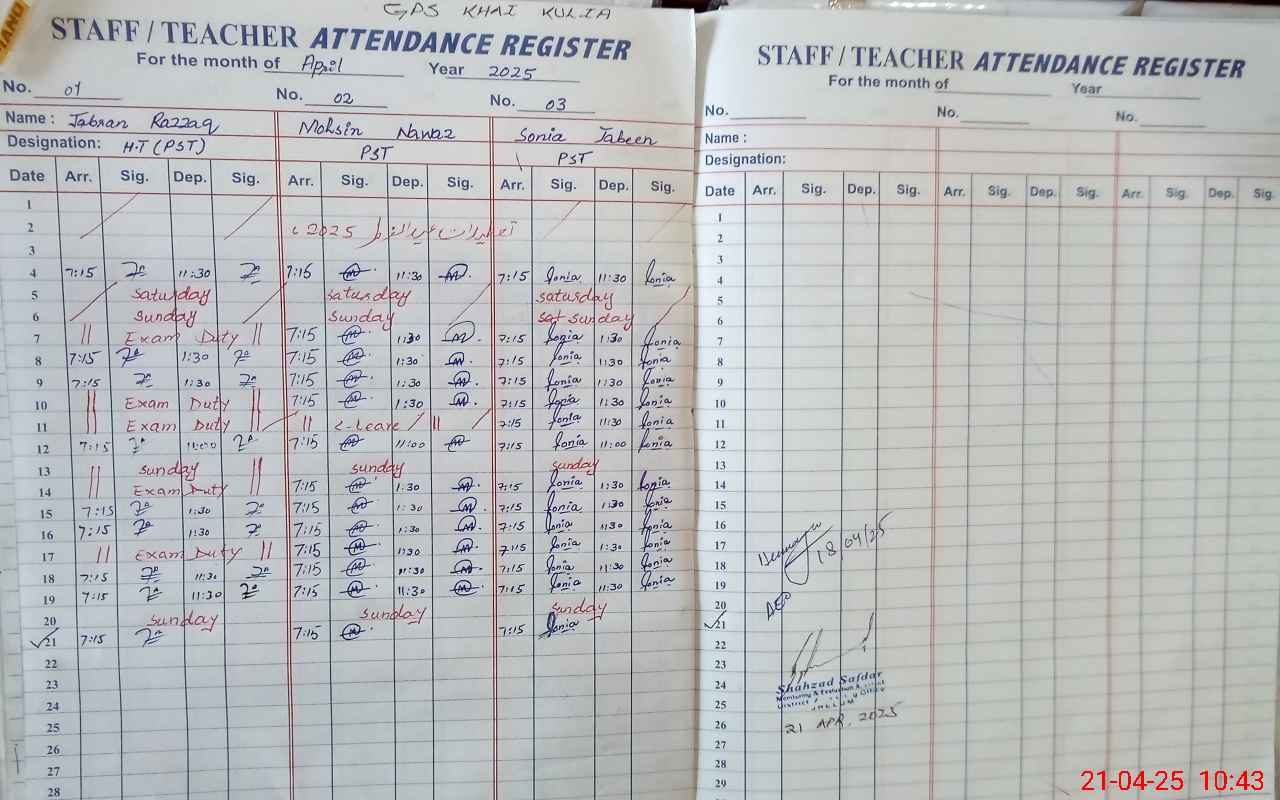 GPS KHAI KULIA
STAFF / TEACHER ATTENDANCE REGISTER
For the month of April Year 2025
No. 01 No. 02 No. 03
Name : Jabran Razzaq Mohsin Nawaz Sonia Jabeen
Designation: H.T (PST) PST PST
Date Arr. Sig. Dep. Sig. Arr. Sig. Dep. Sig. Arr. Sig. Dep. Sig.
1
2 تعطیلات عیدالفطر 2025ء
3
4 7:15 11:30 7:15 11:30 7:15 Sonia 11:30 Sonia
5 Saturday Saturday Saturday
6 Sunday Sunday Sunday
7 || Exam Duty || 7:15 1:30 7:15 Sonia 1:30 Sonia
8 7:15 1:30 7:15 1:30 7:15 Sonia 1:30 Sonia
9 7:15 1:30 7:15 1:30 7:15 Sonia 1:30 Sonia
10 || Exam Duty || 7:15 1:30 7:15 Sonia 1:30 Sonia
11 || Exam Duty || || C-Leave || 7:15 Sonia 11:30 Sonia
12 7:15 11:00 7:15 11:00 7:15 Sonia 11:00 Sonia
13 Sunday Sunday Sunday
14 || Exam Duty || 7:15 1:30 7:15 Sonia 1:30 Sonia
15 7:15 1:30 7:15 1:30 7:15 Sonia 1:30 Sonia
16 7:15 1:30 7:15 1:30 7:15 Sonia 1:30 Sonia
17 || Exam Duty || 7:15 1:30 7:15 Sonia 1:30 Sonia
18 7:15 11:30 7:15 11:30 7:15 Sonia 11:30 Sonia
19 7:15 11:30 7:15 11:30 7:15 Sonia 11:30 Sonia
20 Sunday Sunday Sunday
21 7:15 7:15 7:15 Sonia
22
23
24
25
26
27
28
STAFF / TEACHER ATTENDANCE REGISTER
For the month of Year
No. No. No.
Name :
Designation:
Date Arr. Sig. Dep. Sig. Arr. Sig. Dep. Sig. Arr. Sig. Dep. Sig.
1
2
3
4
5
6
7
8
9
10
11
12
13
14
15
16
17 18/04/25
18
19
20 AEO
21
22
23
24 Shahzad Safdar
Monitoring & Evaluation
25 District
JHELUM
26 21 APR. 2025
27
28
29
21-04-25 10:43